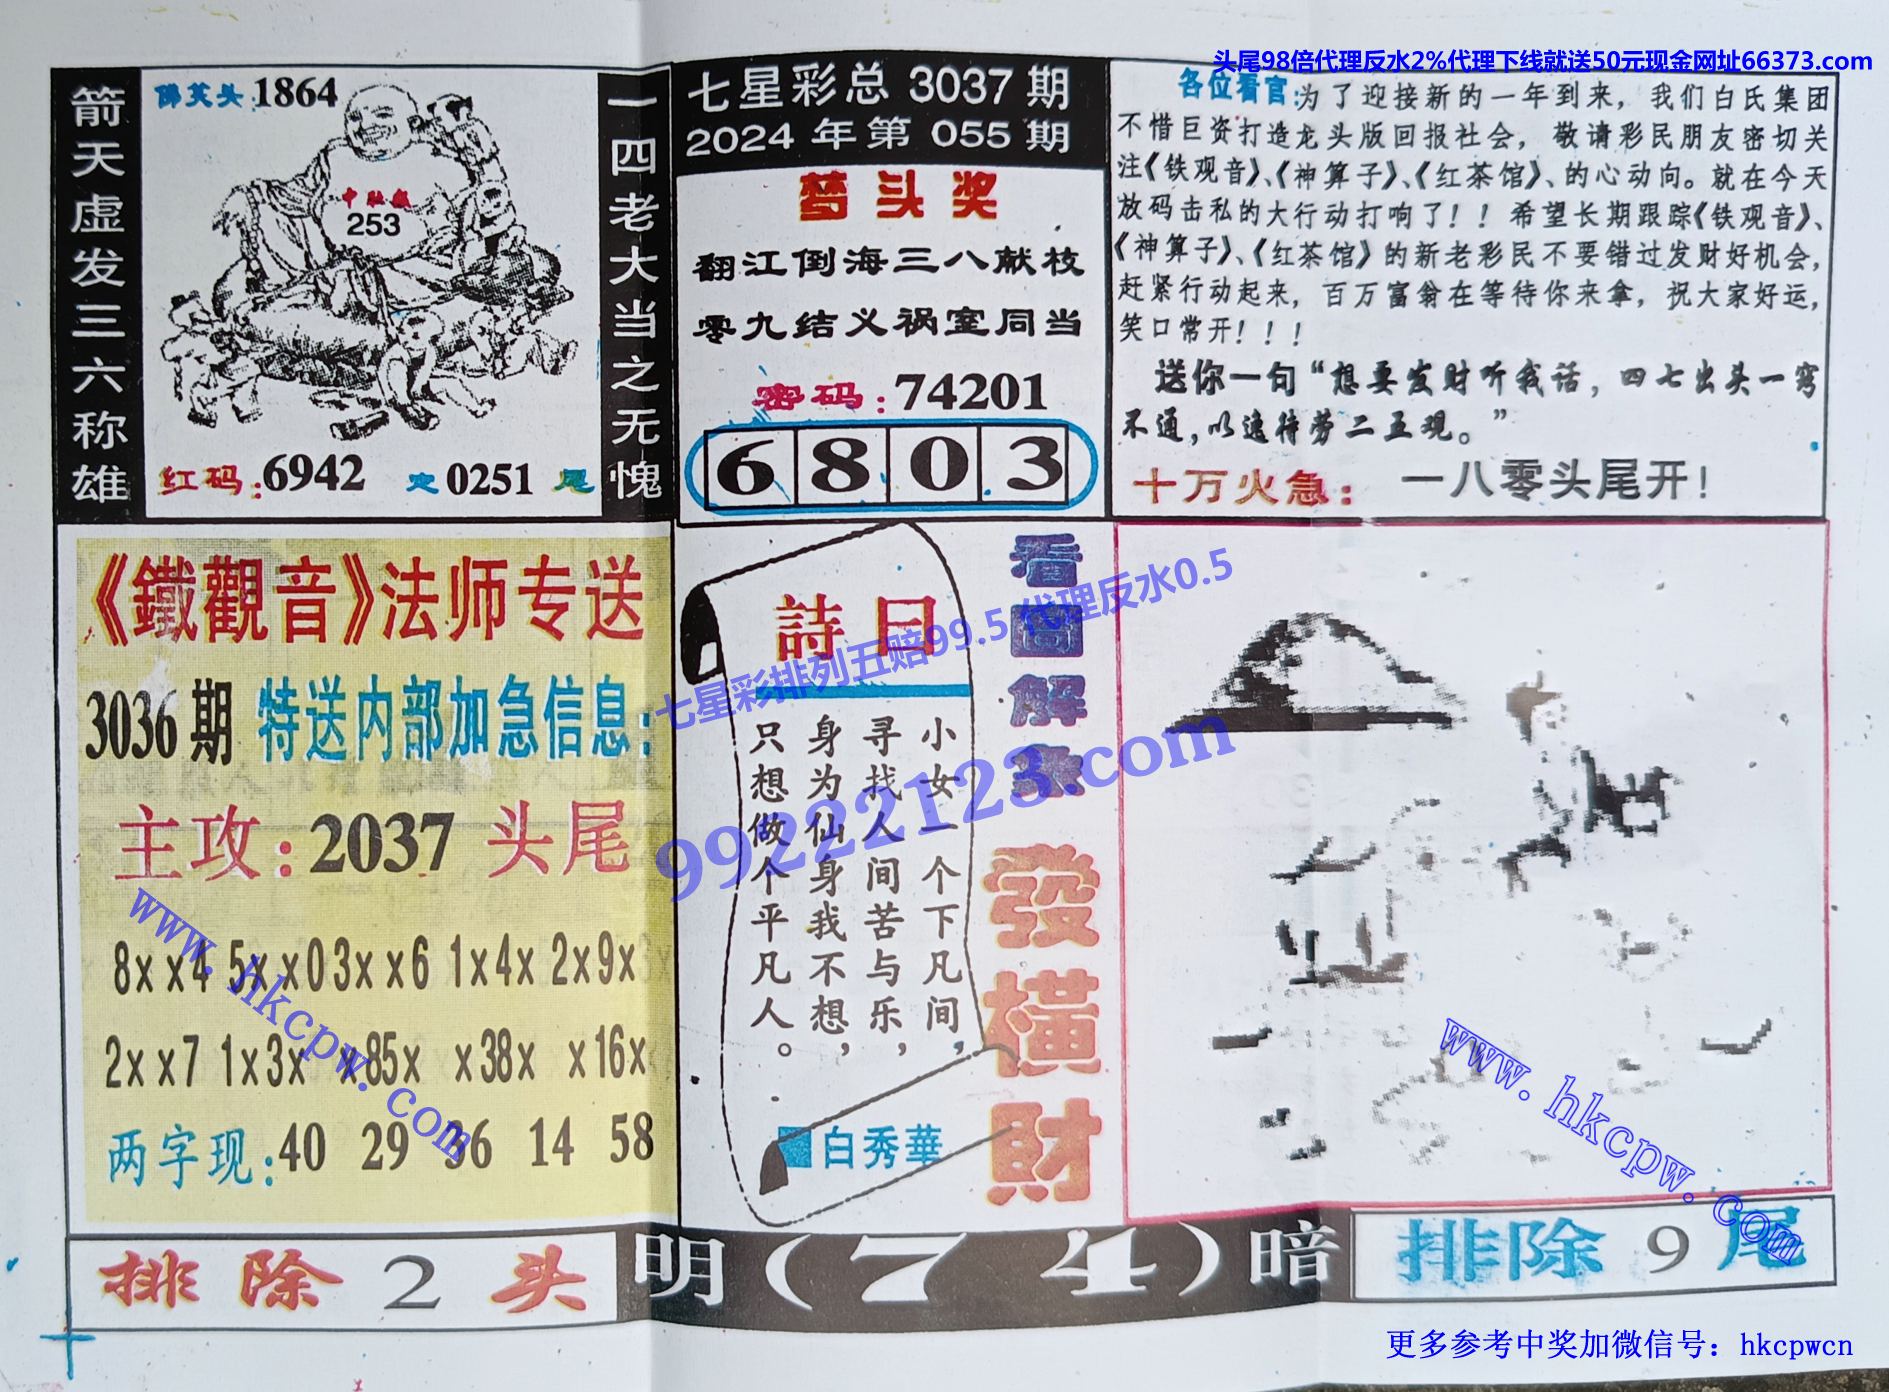 头尾98倍代理反水2%代理下线就送50元现金网址66373.com
箭天虚发三六称雄
1864
253
红码:6942
定0251尾
一四老大当之无愧
七星彩总3037期
2024年第055期
梦头奖
翻江倒海三八献枝
零九结义祸室同当
密码:74201
6803
各位看官:为了迎接新的一年到来，我们白氏集团
不惜巨资打造龙头版回报社会，敬请彩民朋友密切关
注《铁观音》、《神算子》、《红茶馆》、的心动向。就在今天
放码击私的大行动打响了！！希望长期跟踪《铁观音》、
《神算子》、《红茶馆》的新老彩民不要错过发财好机会，
赶紧行动起来，百万富翁在等待你来拿，祝大家好运，
笑口常开！！！
送你一句“想要发财听我话，四七出头一窍
不通，以逸待劳二五现。”
十万火急：一八零头尾开！
《鐵觀音》法师专送
3036期 特送内部加急信息:
主攻:2037头尾
8xx4 5xx0 3xx6 1x4x 2x9x
2xx7 1x3x x85x x38x x16x
两字现:40 29 36 14 58
詩曰
小女一个下凡间，
寻找人间苦与乐，
身为仙身我不想，
只想做个平凡人。
白秀華
看圖解
發橫財
七星彩排列五赔99.5 代理反水0.5
99222123.com
www.hkcpw.com
www.hkcpw.com
排除2头
明(74)暗
排除9尾
更多参考中奖加微信号：hkcpwcn